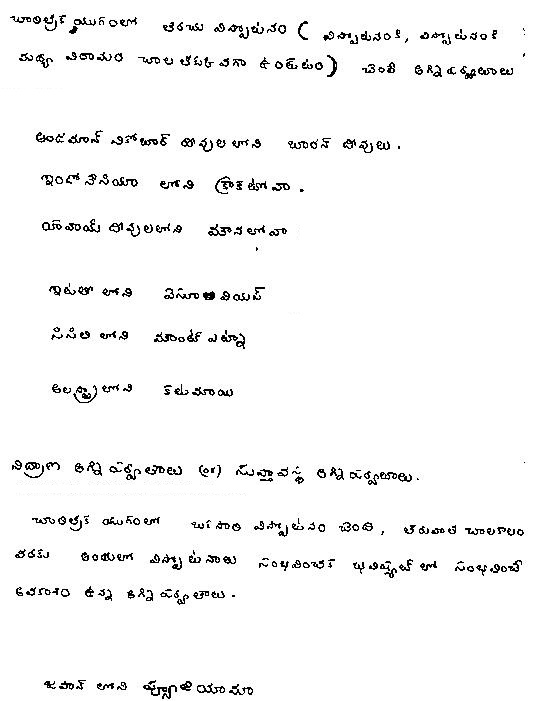 చారిత్రక యుగంలో తరచు విస్ఫోటనం ( విస్ఫోటనంకి, విస్ఫోటనంకి
మధ్య విరామం చాల తక్కువగా ఉంటుటం) చెందే అగ్నిపర్వతాలు
అండమాన్ నికోబార్ దీవులలోని బారన్ దీవులు.
ఇండోనేసియా లోని క్రాకటోవా.
హవాయ్ దీవులలోని మౌనాలోవా
ఇటలీ లోని వెసూవియస్
సిసిలి లోని మౌంట్ ఎట్నా
అలస్కాలోని కటుమాయి
నిద్రాణ అగ్నిపర్వతాలు (or) సుప్తావస్థ అగ్నిపర్వతాలు.
చారిత్రక యుగంలో ఒకసారి విస్ఫోటనం చెంది, తరువాత చాలాకాలం
వరకు అందులో విస్ఫోటనాలు సంభవించక భవిష్యత్ లో సంభవించే
అవకాశం ఉన్న అగ్నిపర్వతాలు.
జపాన్ లోని ఫ్యూజియామా